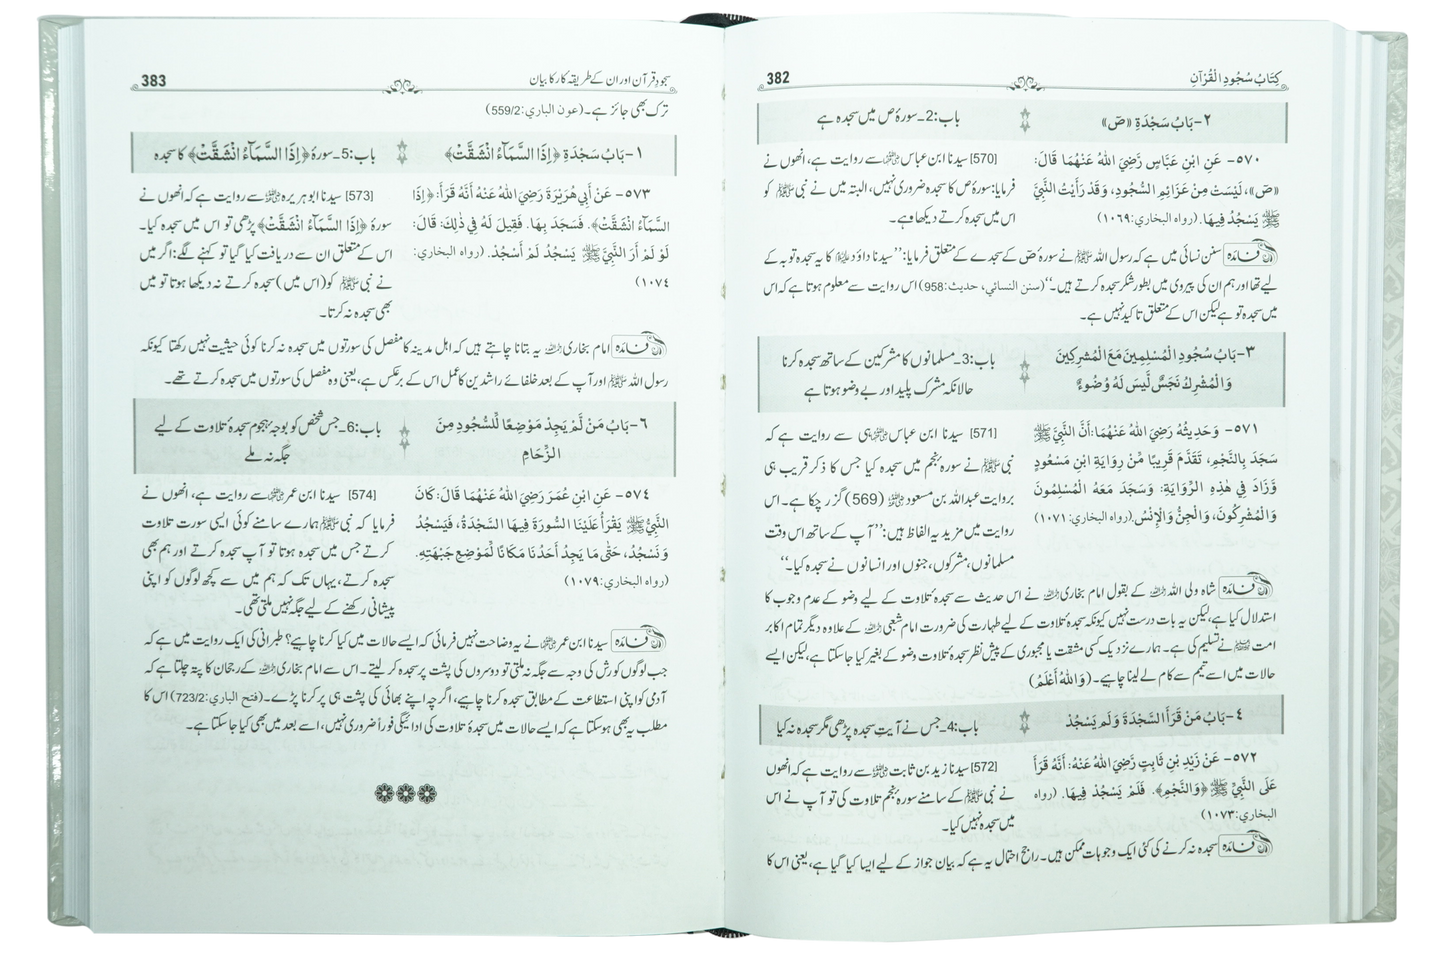 382
كِتَابُ سُجُودِ الْقُرْآنِ
٢- بَابُ سَجْدَةِ «صٓ»
باب:2- سورۂ ص میں سجدہ ہے
٥٧٠- عَنِ ابْنِ عَبَّاسٍ رَضِيَ اللهُ عَنْهُمَا قَالَ:
«صٓ»، لَيْسَتْ مِنْ عَزَائِمِ السُّجُودِ، وَقَدْ رَأَيْتُ النَّبِيَّ
ﷺ يَسْجُدُ فِيهَا. (رواه البخاري: ١٠٦٩)
[570] سیدنا ابن عباس ؓ سے روایت ہے، انھوں نے
فرمایا: سورۂ ص کا سجدہ ضروری نہیں، البتہ میں نے نبی ﷺ کو
اس میں سجدہ کرتے دیکھا ہے۔
فائدہ سنن نسائی میں ہے کہ رسول اللہ ﷺ نے سورۂ صٓ کے سجدے کے متعلق فرمایا: ’’سیدنا داؤد علیہ کا یہ سجدہ توبہ کے
لیے تھا اور ہم ان کی پیروی میں بطور شکر سجدہ کرتے ہیں۔‘‘ (سنن النسائي، حدیث: 958) اس روایت سے معلوم ہوتا ہے کہ اس
میں سجدہ تو ہے لیکن اس کے متعلق تاکید نہیں ہے۔
٣- بَابُ سُجُودِ الْمُسْلِمِينَ مَعَ الْمُشْرِكِينَ
وَالْمُشْرِكُ نَجَسٌ لَّيْسَ لَهُ وُضُوءٌ
باب:3- مسلمانوں کا مشرکین کے ساتھ سجدہ کرنا
حالانکہ مشرک پلید اور بے وضو ہوتا ہے
٥٧١- وَحَدِيثُهُ رَضِيَ اللهُ عَنْهُمَا: أَنَّ النَّبِيَّ ﷺ
سَجَدَ بِالنَّجْمِ، تَقَدَّمَ قَرِيبًا مِّنْ رِوَايَةِ ابْنِ مَسْعُودٍ
وَزَادَ فِي هٰذِهِ الرِّوَايَةِ: وَسَجَدَ مَعَهُ الْمُسْلِمُونَ
وَالْمُشْرِكُونَ، وَالْجِنُّ وَالْإِنْسُ. (رواه البخاري: ١٠٧١)
[571] سیدنا ابن عباس ؓ ہی سے روایت ہے کہ
نبی ﷺ نے سورۂ نجم میں سجدہ کیا جس کا ذکر قریب ہی
بروایت عبداللہ بن مسعود ؓ (569) گزر چکا ہے۔ اس
روایت میں مزید یہ الفاظ ہیں: ’’آپ کے ساتھ اس وقت
مسلمانوں، مشرکوں، جنوں اور انسانوں نے سجدہ کیا۔‘‘
فائدہ شاہ ولی اللہ ؒ کے بقول امام بخاری ؒ نے اس حدیث سے سجدۂ تلاوت کے لیے وضو کے عدم وجوب کا
استدلال کیا ہے، لیکن یہ بات درست نہیں کیونکہ سجدۂ تلاوت کے لیے طہارت کی ضرورت امام شعبی ؒ کے علاوہ دیگر تمام اکابر
امت نے تسلیم کی ہے۔ ہمارے نزدیک کسی مشقت یا مجبوری کے پیش نظر سجدۂ تلاوت وضو کے بغیر کیا جاسکتا ہے، لیکن ایسے
حالات میں اسے تیمم سے کام لے لینا چاہیے۔ (وَاللهُ أَعْلَمُ)
٤- بَابُ مَنْ قَرَأَ السَّجْدَةَ وَلَمْ يَسْجُدْ
باب:4- جس نے آیت سجدہ پڑھی مگر سجدہ نہ کیا
٥٧٢- عَنْ زَيْدِ بْنِ ثَابِتٍ رَّضِيَ اللهُ عَنْهُ: أَنَّهُ قَرَأَ
عَلَى النَّبِيِّ ﷺ ﴿وَالنَّجْمِ﴾. فَلَمْ يَسْجُدْ فِيهَا. (رواه
البخاري: ١٠٧٣)
[572] سیدنا زید بن ثابت ؓ سے روایت ہے کہ انھوں
نے نبی ﷺ کے سامنے سورۂ نجم تلاوت کی تو آپ نے اس
میں سجدہ نہیں کیا۔
فائدہ سجدہ نہ کرنے کی کئی ایک وجوہات ممکن ہیں۔ راجح احتمال یہ ہے کہ بیان جواز کے لیے ایسا کیا گیا ہے، یعنی اس کا
383
سجودِ قرآن اور ان کے طریقہ کار کا بیان
ترک بھی جائز ہے۔ (عون الباري: 559/2)
١- بَابُ سَجْدَةِ ﴿إِذَا السَّمَآءُ انْشَقَّتْ﴾
باب:5- سورۂ ﴿إِذَا السَّمَآءُ انْشَقَّتْ﴾ کا سجدہ
٥٧٣- عَنْ أَبِي هُرَيْرَةَ رَضِيَ اللهُ عَنْهُ أَنَّهُ قَرَأَ: ﴿إِذَا
السَّمَآءُ انْشَقَّتْ﴾. فَسَجَدَ بِهَا. فَقِيلَ لَهُ فِي ذٰلِكَ: قَالَ:
لَوْ لَمْ أَرَ النَّبِيَّ ﷺ يَسْجُدُ لَمْ أَسْجُدْ. (رواه البخاري:
١٠٧٤)
[573] سیدنا ابو ہریرہ ؓ سے روایت ہے کہ انھوں نے
سورۂ ﴿إِذَا السَّمَآءُ انْشَقَّتْ﴾ پڑھی تو اس میں سجدہ کیا۔
اس کے متعلق ان سے دریافت کیا گیا تو کہنے لگے: اگر میں
نے نبی ﷺ کو (اس میں) سجدہ کرتے نہ دیکھا ہوتا تو میں
بھی سجدہ نہ کرتا۔
فائدہ امام بخاری ؒ یہ بتانا چاہتے ہیں کہ اہل مدینہ کا مفصل کی سورتوں میں سجدہ نہ کرنا کوئی حیثیت نہیں رکھتا کیونکہ
رسول اللہ ﷺ اور آپ کے بعد خلفائے راشدین کا عمل اس کے برعکس ہے، یعنی وہ مفصل کی سورتوں میں سجدہ کرتے تھے۔
٦- بَابُ مَنْ لَّمْ يَجِدْ مَوْضِعًا لِّلسُّجُودِ مِنَ
الزِّحَامِ
باب:6- جس شخص کو بوجہ ہجوم سجدۂ تلاوت کے لیے
جگہ نہ ملے
٥٧٤- عَنِ ابْنِ عُمَرَ رَضِيَ اللهُ عَنْهُمَا قَالَ: كَانَ
النَّبِيُّ ﷺ يَقْرَأُ عَلَيْنَا السُّورَةَ فِيهَا السَّجْدَةُ، فَيَسْجُدُ
وَنَسْجُدُ، حَتّٰى مَا يَجِدُ أَحَدُنَا مَكَانًا لِّمَوْضِعِ جَبْهَتِهِ.
(رواه البخاري: ١٠٧٩)
[574] سیدنا ابن عمر ؓ سے روایت ہے، انھوں نے
فرمایا کہ نبی ﷺ ہمارے سامنے کوئی ایسی سورت تلاوت
کرتے جس میں سجدہ ہوتا تو آپ سجدہ کرتے اور ہم بھی
سجدہ کرتے، یہاں تک کہ ہم میں سے کچھ لوگوں کو اپنی
پیشانی رکھنے کے لیے جگہ نہیں ملتی تھی۔
فائدہ سیدنا ابن عمر ؓ نے یہ وضاحت نہیں فرمائی کہ ایسے حالات میں کیا کرنا چاہیے؟ طبرانی کی ایک روایت میں ہے کہ
جب لوگوں کو رش کی وجہ سے جگہ نہ ملتی تو دوسروں کی پشت پر سجدہ کر لیتے۔ اس سے امام بخاری ؒ کے رجحان کا پتہ چلتا ہے کہ
آدمی کو اپنی استطاعت کے مطابق سجدہ کرنا چاہیے، اگرچہ اپنے بھائی کی پشت ہی پر کرنا پڑے۔ (فتح الباري: 723/2) اس کا
مطلب یہ بھی ہوسکتا ہے کہ ایسے حالات میں سجدۂ تلاوت کی ادائیگی فوراً ضروری نہیں، اسے بعد میں بھی کیا جاسکتا ہے۔